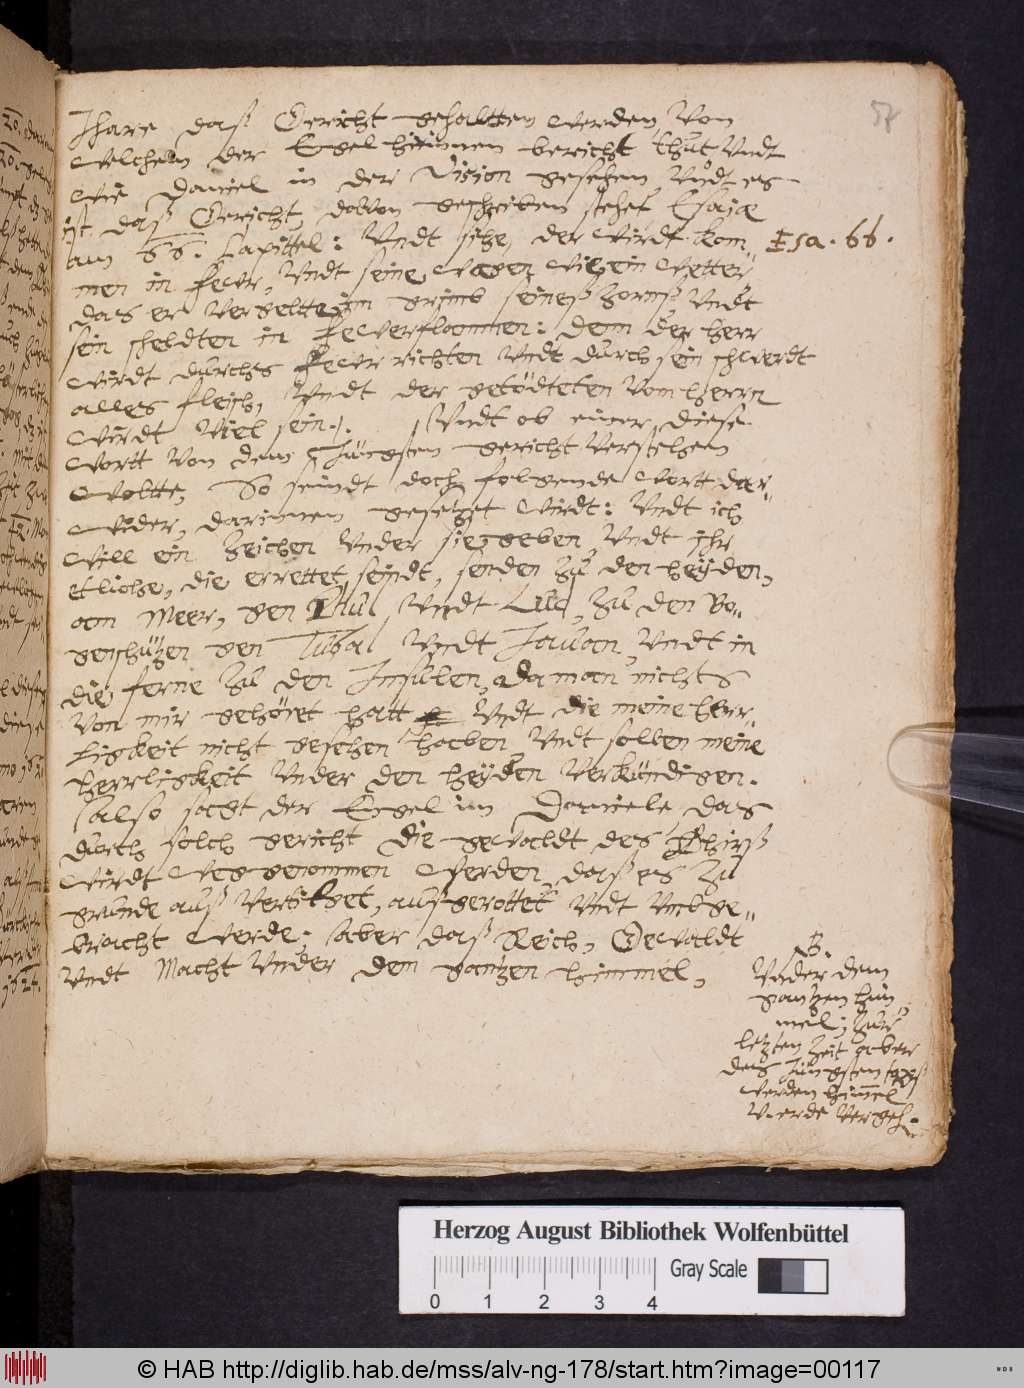 57
Jhare daß Gericht gehaltten werden, Von
welchem der Engel hirinnen bericht thut Vndt
wie Daniel in der Vision gesehen, Vndt es
ist daß Gericht, dovon geschrieben stehet Esajæ
am 66. Capittel: Vndt sihe, der wirdt kom
Esa. 66.
men in fewr, Vndt seine wagen wie ein wetter
das er Vergeltte im grimb seineß Zornß Vndt
sein scheldten in fewerflammen: denn der herr
wirdt durchs fewr richten Vndt durch sein schwerdt
alles fleisch, Vndt der getödteten Vom herrn
wirdt Viel sein. Vndt ob einer diese
wortt Von dem Jüngsten gericht Verstehen
woltte, So seindt doch folgende wortt dar-
wider, darinnen gesetzet wirdt: Vndt ich
will ein Zeichen Vnder sie geben, Vndt ihr
etliche, die errettet seindt, senden Zu den heyden,
am Meer, gen Phul Vndt Lud, Zu den Bo-
genschützen gen Tubal Vndt Jauan, Vndt in
die ferne Zu den Insulen, da man nichts
Von mir gehöret hatt Vndt die meine herr-
ligkeit nicht gesehen haben, Vndt sollen meine
herrligkeit Vnder den heyden Verkündigen.
Also sagt der Engel im Daniele, das
durch solch gericht die gewaldt des Thirß
wirdt weggenommen werden, daß es Zu
grunde auß Vertilget, außgerottet Vndt Vmbge-
bracht werde; aber daß Reich, Gewaldt
Vndt Macht Vnder dem gantzen himmel,
B.
Vnder dem
gantzen him
mel; Zur
letzten Zeit aber
des Jüngsten tagß
werden himmel
Herzog August Bibliothek Wolfenbüttel
Gray Scale
0 1 2 3 4
© HAB http://diglib.hab.de/mss/alv-ng-178/start.htm?image=00117